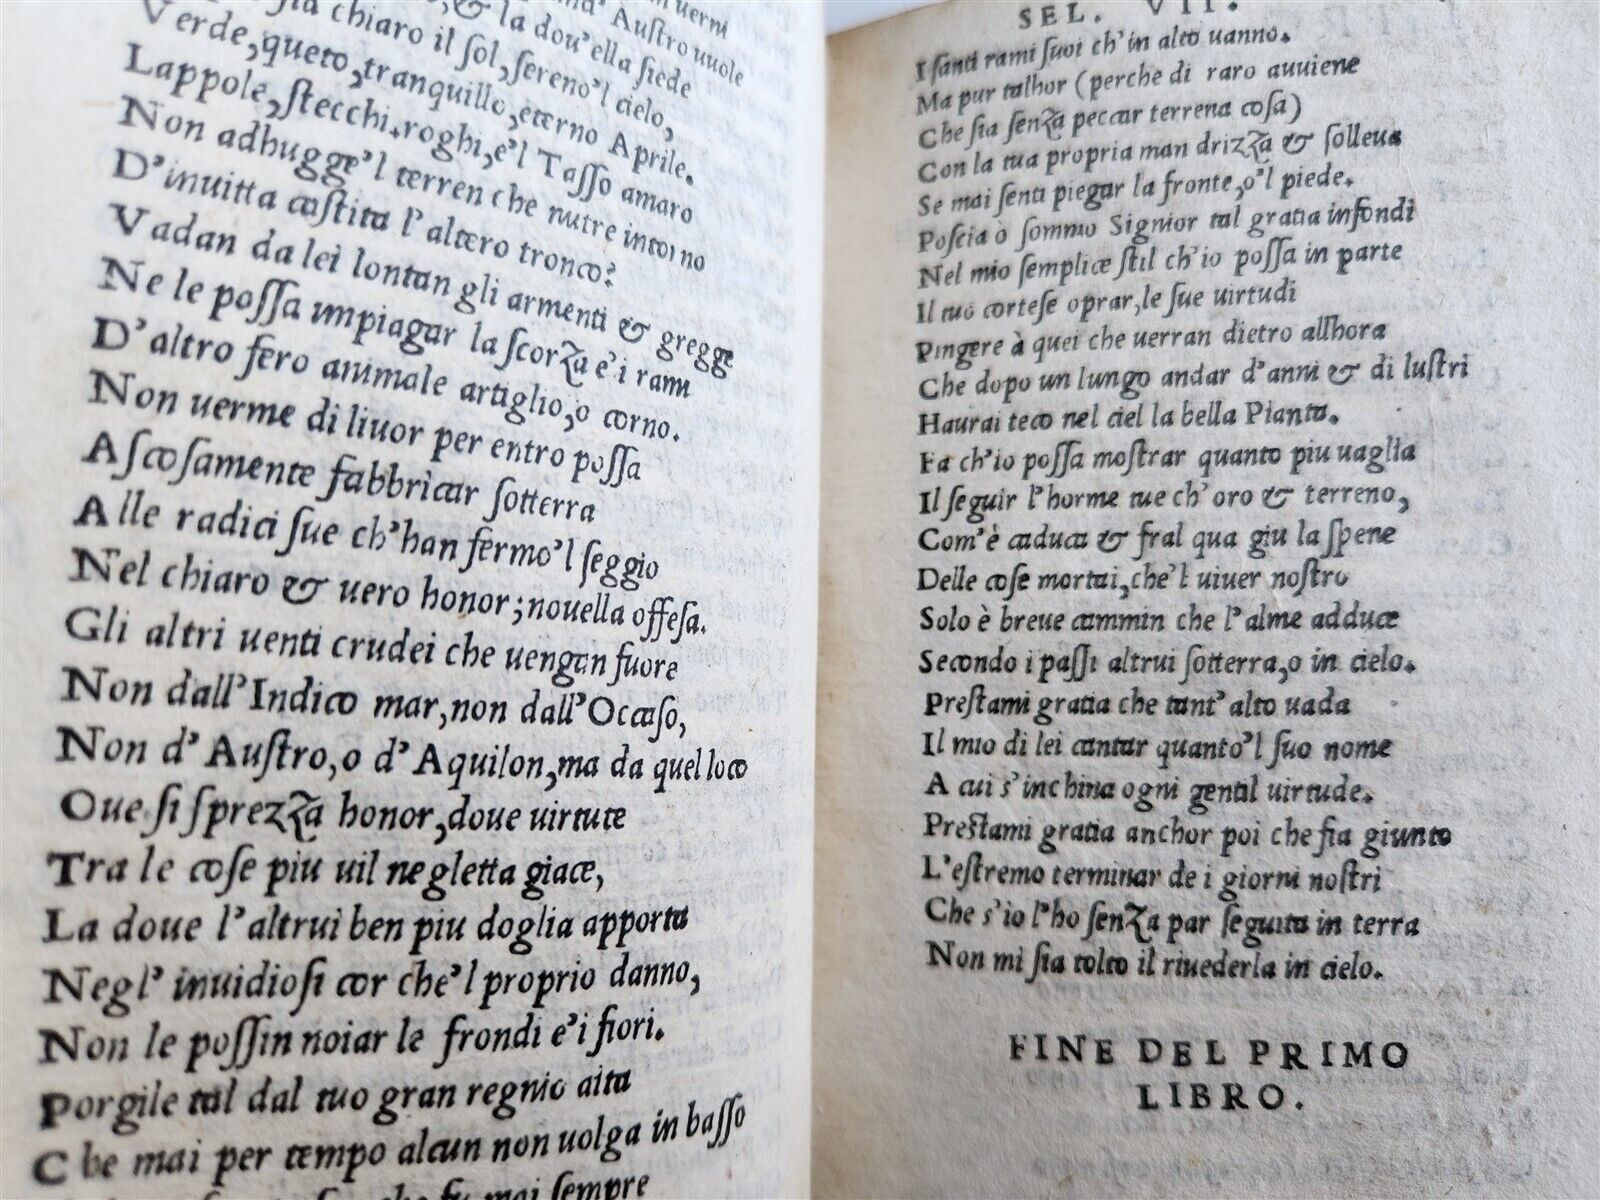 uerni
d'Austro uuole
ſia chiaro il ſol, & la dou'ella ſiede
Verde, queto, tranquillo, eterno Aprile.
Lappole, ſtecchi, roghi, e'l Taſſo amaro
Non adhugge'l terren che nutre intorno
D'inuitta caſtita l'altero tronco?
Vadan da lei lontan gli armenti & gregge
Ne le poſſa impiagar la ſcorza e' i rami
D'altro fero animale artiglio, o corno.
Non uerme di liuor per entro poſſa
Aſcoſamente fabbricar ſotterra
Alle radici ſue ch'han fermo'l ſeggio
Nel chiaro & uero honor; nouella offeſa.
Gli altri uenti crudei che uengan fuore
Non dall'Indico mar, non dall'Occaſo,
Non d'Auſtro, o d'Aquilon, ma da quel loco
Oue ſi ſprezza honor, doue uirtute
Tra le coſe piu uil negletta giace,
La doue l'altrui ben piu doglia apporta
Negl' inuidioſi cor che'l proprio danno,
Non le poſſin noiar le frondi e' i fiori.
Porgile tal dal tuo gran regnio aita
Che mai per tempo alcun non uolga in baſſo
che fu mai ſempre
SEL. VII.
I ſanti rami ſuoi ch'in alto uanno.
Ma pur talhor (perche di raro auuiene
Che ſia ſenza peccar terrena coſa)
Con la tua propria man drizza & ſolleua
Se mai ſenti piegar la fronte, o'l piede.
Poſcia ò ſommo Signior tal gratia infondi
Nel mio ſemplice ſtil ch'io poſſa in parte
Il tuo corteſe oprar, le ſue uirtudi
Pingere à quei che uerran dietro allhora
Che dopo un lungo andar d'anni & di luſtri
Haurai teco nel ciel la bella Pianta.
Fa ch'io poſſa moſtrar quanto piu uaglia
Il ſeguir l'horme tue ch'oro & terreno,
Com'è caduca & fral qua giu la ſpene
Delle coſe mortai, che'l uiuer noſtro
Solo è breue cammin che l'alme adduce
Secondo i paſſi altrui ſotterra, o in cielo.
Preſtami gratia che tant' alto uada
Il mio di lei cantar quanto'l ſuo nome
A cui s'inchina ogni gentil uirtude.
Preſtami gratia anchor poi che fia giunto
L'eſtremo terminar de i giorni noſtri
Che s'io l'ho ſenza par ſeguita in terra
Non mi ſia tolto il riuederla in cielo.
FINE DEL PRIMO
LIBRO.